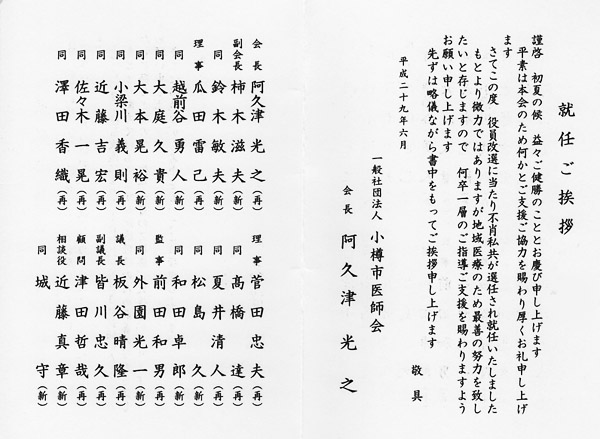 就任ご挨拶
謹啓 初夏の候 益々ご健勝のこととお慶び申し上げます
平素は本会のため何かとご支援ご協力を賜わり厚くお礼申し上げ
ます
さてこの度 役員改選に当たり不肖私共が選任され就任いたしました
もとより微力ではありますが地域医療のため最善の努力を致し
たいと存じますので 何卒一層のご指導ご支援を賜わりますよう
お願い申し上げます
先ずは略儀ながら書中をもってご挨拶申し上げます
敬具
平成二十九年六月
一般社団法人 小樽市医師会
会長 阿久津光之
会長 阿久津光之(再)
副会長 柿木滋夫(再)
同 鈴木敏夫(再)
理事 瓜田雷己(再)
同 越前谷勇人(新)
同 大庭久貴(新)
同 大本晃裕(新)
同 小梁川義則(新)
同 近藤吉宏(再)
同 佐々木一晃(再)
同 澤田香織(再)
理事 菅田忠夫(再)
同 高橋達(再)
同 夏井清人(再)
同 松島久(新)
同 和田卓郎(新)
監事 前田和男(再)
同 外園光一(新)
議長 板谷晴隆(再)
副議長 皆川忠久(新)
顧問 津田哲哉(再)
相談役 近藤真章(新)
同 城守(新)